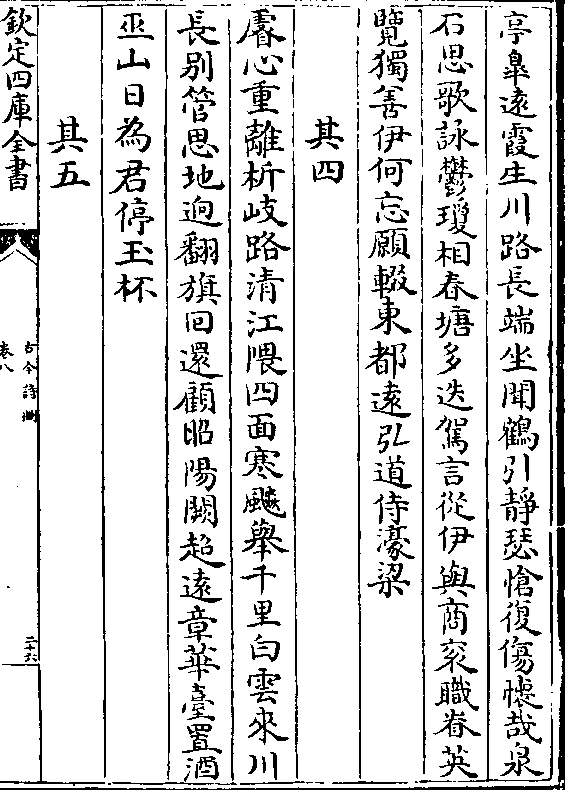 亭臯遠霞生川路長端坐聞鶴引靜瑟愴復傷懷哉泉
石思歌詠鬱瓊相春塘多迭駕言從伊與商衮職眷英
覽獨善伊何忘願輟東都遠弘道侍濠梁
其四
眷心重離析岐路清江隈四面寒飈舉千里白雲來川
長别管思地迥翻旗回還顧昭陽闕超遠章華臺置酒
巫山日為君停玉杯
其五
欽定四庫全書
古今詩刪
卷八
二十六